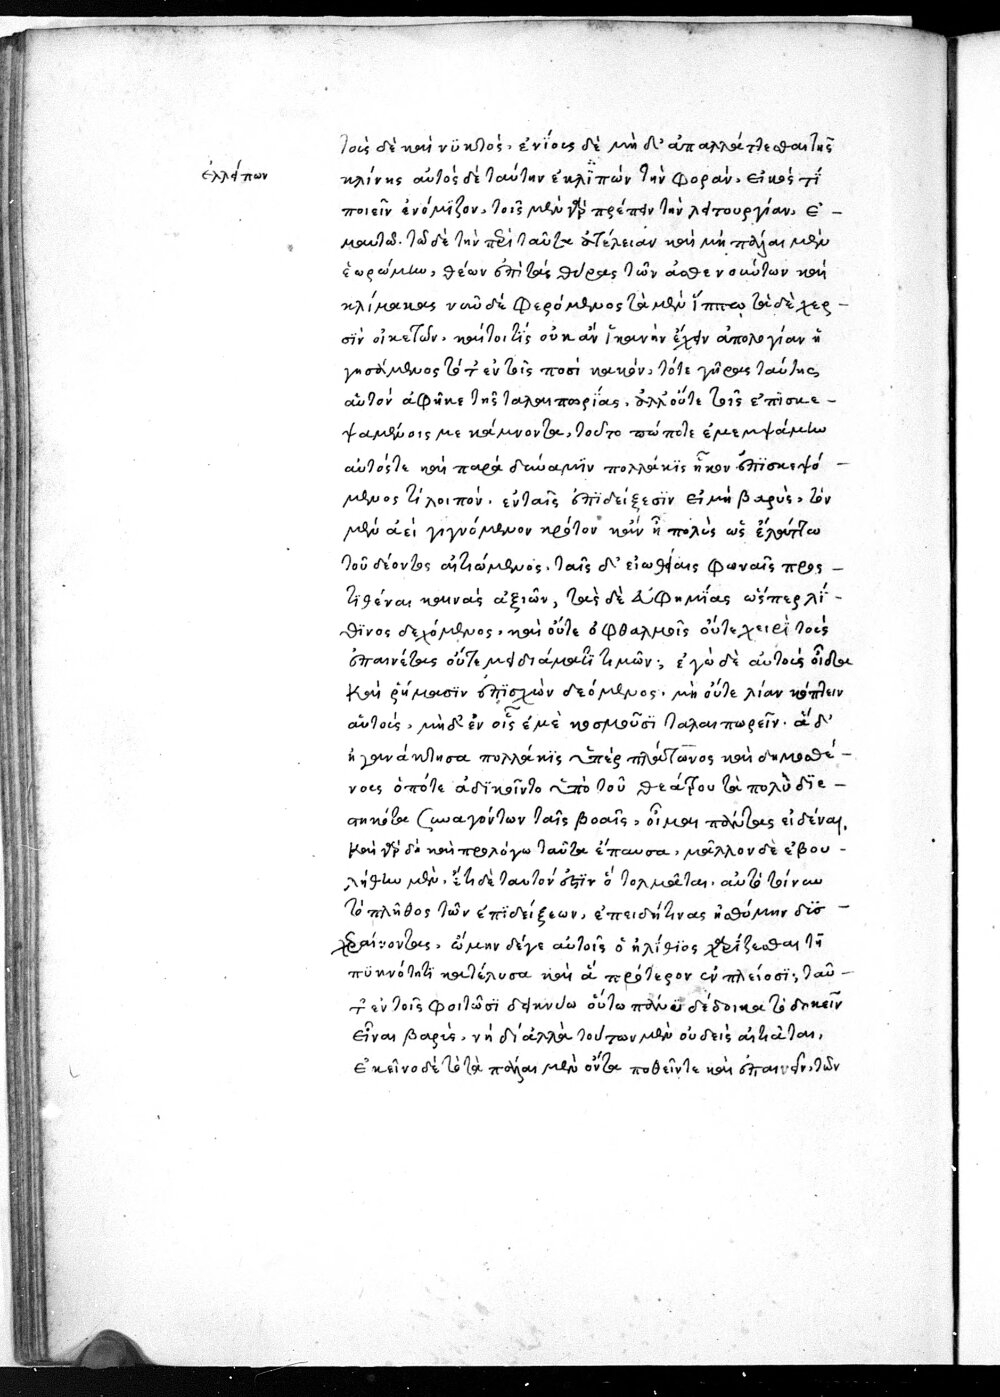 τοῖς δὲ καὶ νυκτὸς, ἐνίοις δὲ μὴ δ' ἀπαλλάττεσθαι τῆς
ἐλλείπων
κλίνης αὐτὸς δὲ ταύτην ἐκλιπὼν τὴν φορὰν, εἰκός τί
ποιεῖν ἐνόμιζον, τοῖς μὲν γὰρ πρέπειν τὴν λειτουργίαν, ἐ-
μαυτῶ. τῶ δὲ τὴν περὶ ταῦτα ἀτέλειαν καὶ μὴ πάλαι μὲν
ἑωρώμην, θέων ἐπὶ τὰς θύρας τῶν ἀσθενούντων καὶ
κλίμακας νῦν δὲ φερόμενος τὰ μὲν ἵππω τὰ δὲ χερ-
σὶν οἰκετῶν, καίτοι τίς οὐκ ἂν ἱκανὴν ἔχειν ἀπολογίαν ἡ
γησάμενος τό τ' ἐν τοῖς ποσὶ κακὸν, τό τε γῆρας ταύτης
αὑτὸν ἀφῆκε τῆς ταλαιπωρίας, ἀλλ' οὔτε τοῖς ἐπισκε-
ψαμένοις με κάμνοντα, τοῦτο πώποτε ἐμεμψάμην
αὐτός τε καὶ παρὰ δύναμιν πολλάκις ἧκον ἐπισκεψό-
μενος τί λοιπὸν. ἐν ταῖς ἐπιδείξεσιν εἰμὴ βαρὺς, τὸν
μὲν ἀεὶ γιγνόμενον κρότον κἂν ἦ πολὺς ὡς ἐλάττω
τοῦ δέοντος αἰτιώμενος. ταῖς δ' εἰωθυίαις φωναῖς προσ-
τιθέναι καινὰς ἀξιῶν, τὰς δὲ εὐφημίας ὥσπερ λί-
θινος δεχόμενος, καὶ οὔτε ὀφθαλμοῖς οὔτε χειρὶ τοὺς
ἐπαινέτας οὔτε μειδιάματι τιμῶν; ἐγὼ δὲ αὐτοὺς οἶδα
καὶ ῥήμασιν ἐπισχὼν δεόμενος, μὴ οὔτε λίαν κόπτειν
αὑτοὺς, μὴ δ' ἐν οἷς ἐμὲ κοσμοῦσι ταλαιπωρεῖν. ἃ δ'
ἠγανάκτησα πολλάκις ὑπὲρ πλάτωνος καὶ δημοσθέ-
νους ὁπότε ἀδικοῖντο ὑπὸ τοῦ θεάτρου τὰ πολὺ διε-
στηκότα συναγόντων ταῖς βοαῖς, οἶμαι πάντας εἰδέναι,
καὶ γὰρ δὴ καὶ προλόγω ταῦτα ἔπαυσα, μᾶλλον δὲ ἐβου-
λήθην μὲν, ἔτι δὲ ταυτόν ἐστιν ὃ τολμᾶται. αὐτὸ τοίνυν
τὸ πλῆθος τῶν ἐπιδείξεων, ἐπειδή τινας ἠσθόμην δυσ-
χεραίνοντας, ὤμην δέγε αὐτοῖς ὁ ἠλίθιος χαρίζεσθαι τῆ
πυκνότητι κατέλυσα καὶ ἃ πρότερον ἐν πλείοσι; ταῦ-
τ' ἐν τοῖς φοιτῶσι δείκνυω οὕτω πάνυ δέδοικα τὸ δοκεῖν
εἶναι βαρὺς, νὴ δί' ἀλλὰ τούτων μὲν οὐδεὶς αἰτιᾶται,
ἐκεῖνο δὲ τὸ τὰ πάλαι μὲν ὄντα ποθεῖν τε καὶ ἐπαινεῖν, τῶν